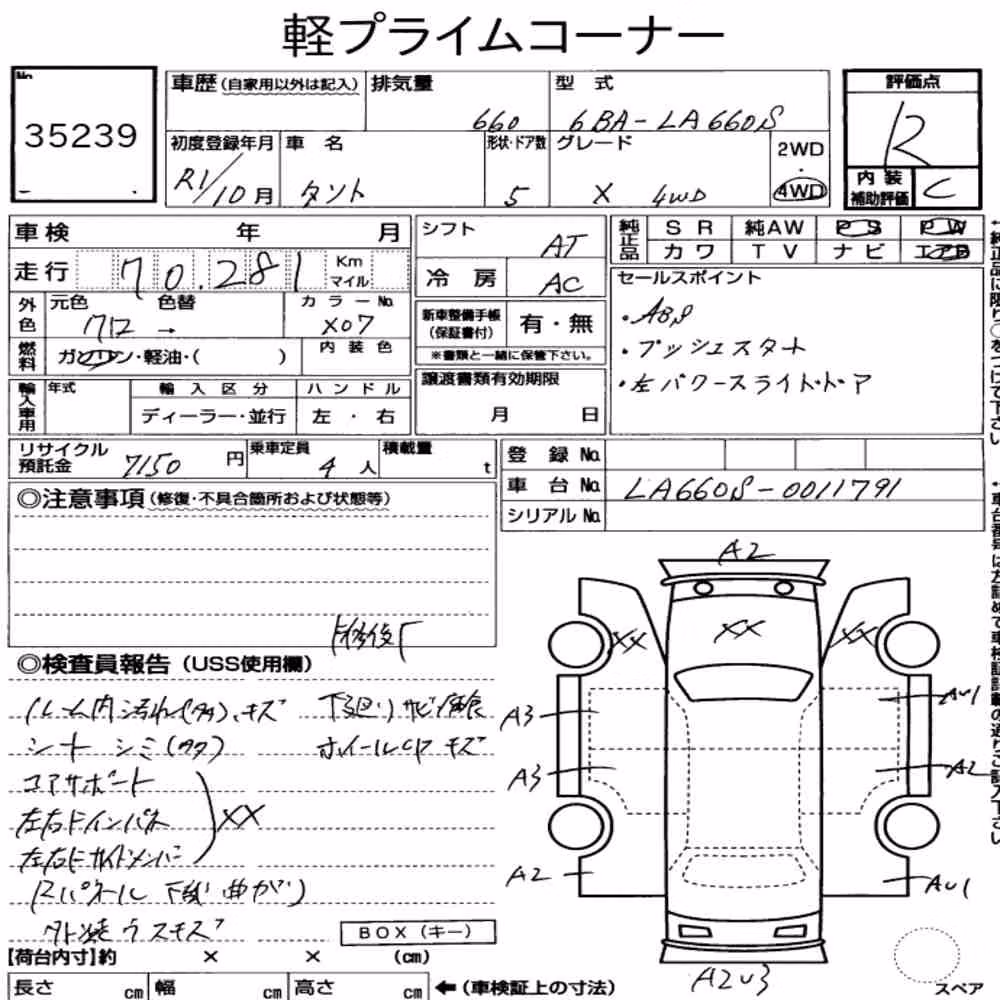 軽プライムコーナー
No.
35239
車歴 (自家用以外は記入)
排気量
660
型 式
6BA-LA660S
評価点
R
初度登録年月
R1/10月
車 名
タント
形状・ドア数
5
グレード
X 4WD
2WD
・
4WD
内装
補助評価
C
車検 年 月
走行 70.281 Km
マイル
外色
元色
色替
カラーNo.
→
X07
燃料
ガソリン・軽油・( )
内装色
輸入車用
年式
輸入区分
ハンドル
ディーラー・並行
左・右
シフト AT
冷 房 AC
新車整備手帳
(保証書付)
有・無
※書類と一緒に保管下さい。
譲渡書類有効期限
月 日
純正品
SR 純AW PS PW
カワ TV ナビ エアB
セールスポイント
・ABS
・プッシュスタート
・左パワースライドドア
リサイクル
預託金
7150 円
乗車定員
4 人
積載量
t
登 録 No.
車 台 No.
LA660S-0011791
シリアル No.
◎注意事項 (修復・不具合箇所および状態等)
◎検査員報告 (USS使用欄)
ルーム内汚れ(タタ)、キズ
下廻りサビ腐食
シート シミ(タタ)
ホイールCP キズ
コアサポート
左右Fインパネ
XX
左右Fサイドメンバー
Rパネル 下部曲がり
BOX (キー)
【荷台内寸】約 × × (cm)
長さ cm 幅 cm 高さ cm
←(車検証上の寸法)
A2
XX
XX
XX
A3
AU1
A3
A2
A2
AU1
A2U3
スペア